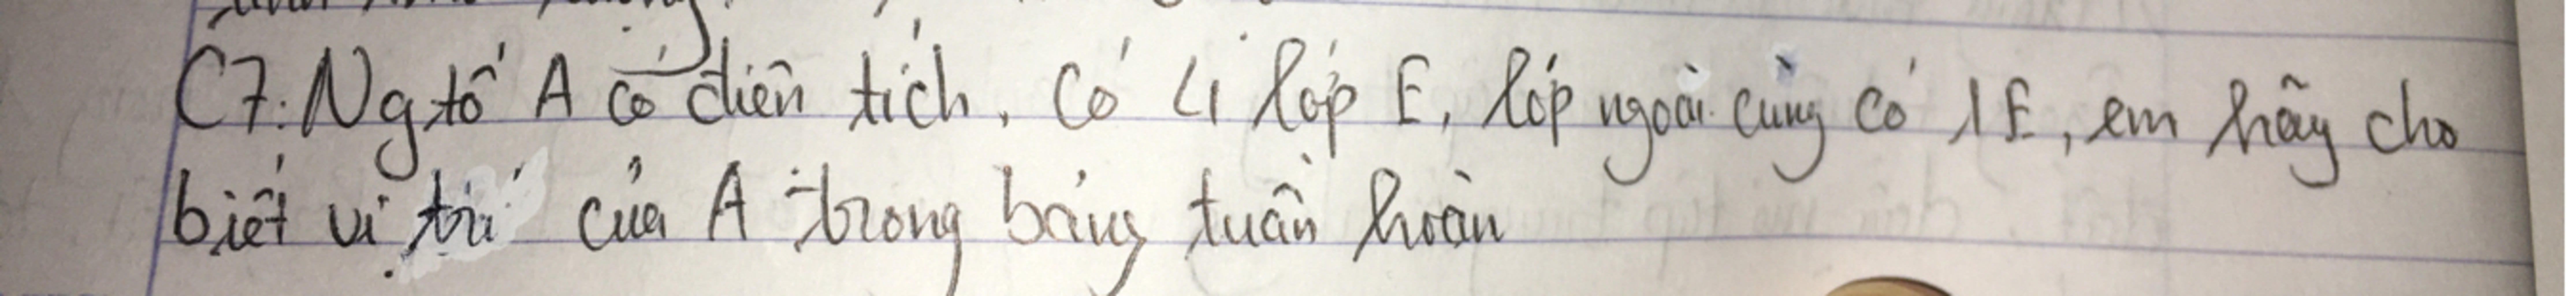 C7: Ng tố A có điện tích, có 4 lớp E, lớp ngoài cùng có 1E, em hãy cho
biết vị trí của A trong bảng tuần hoàn